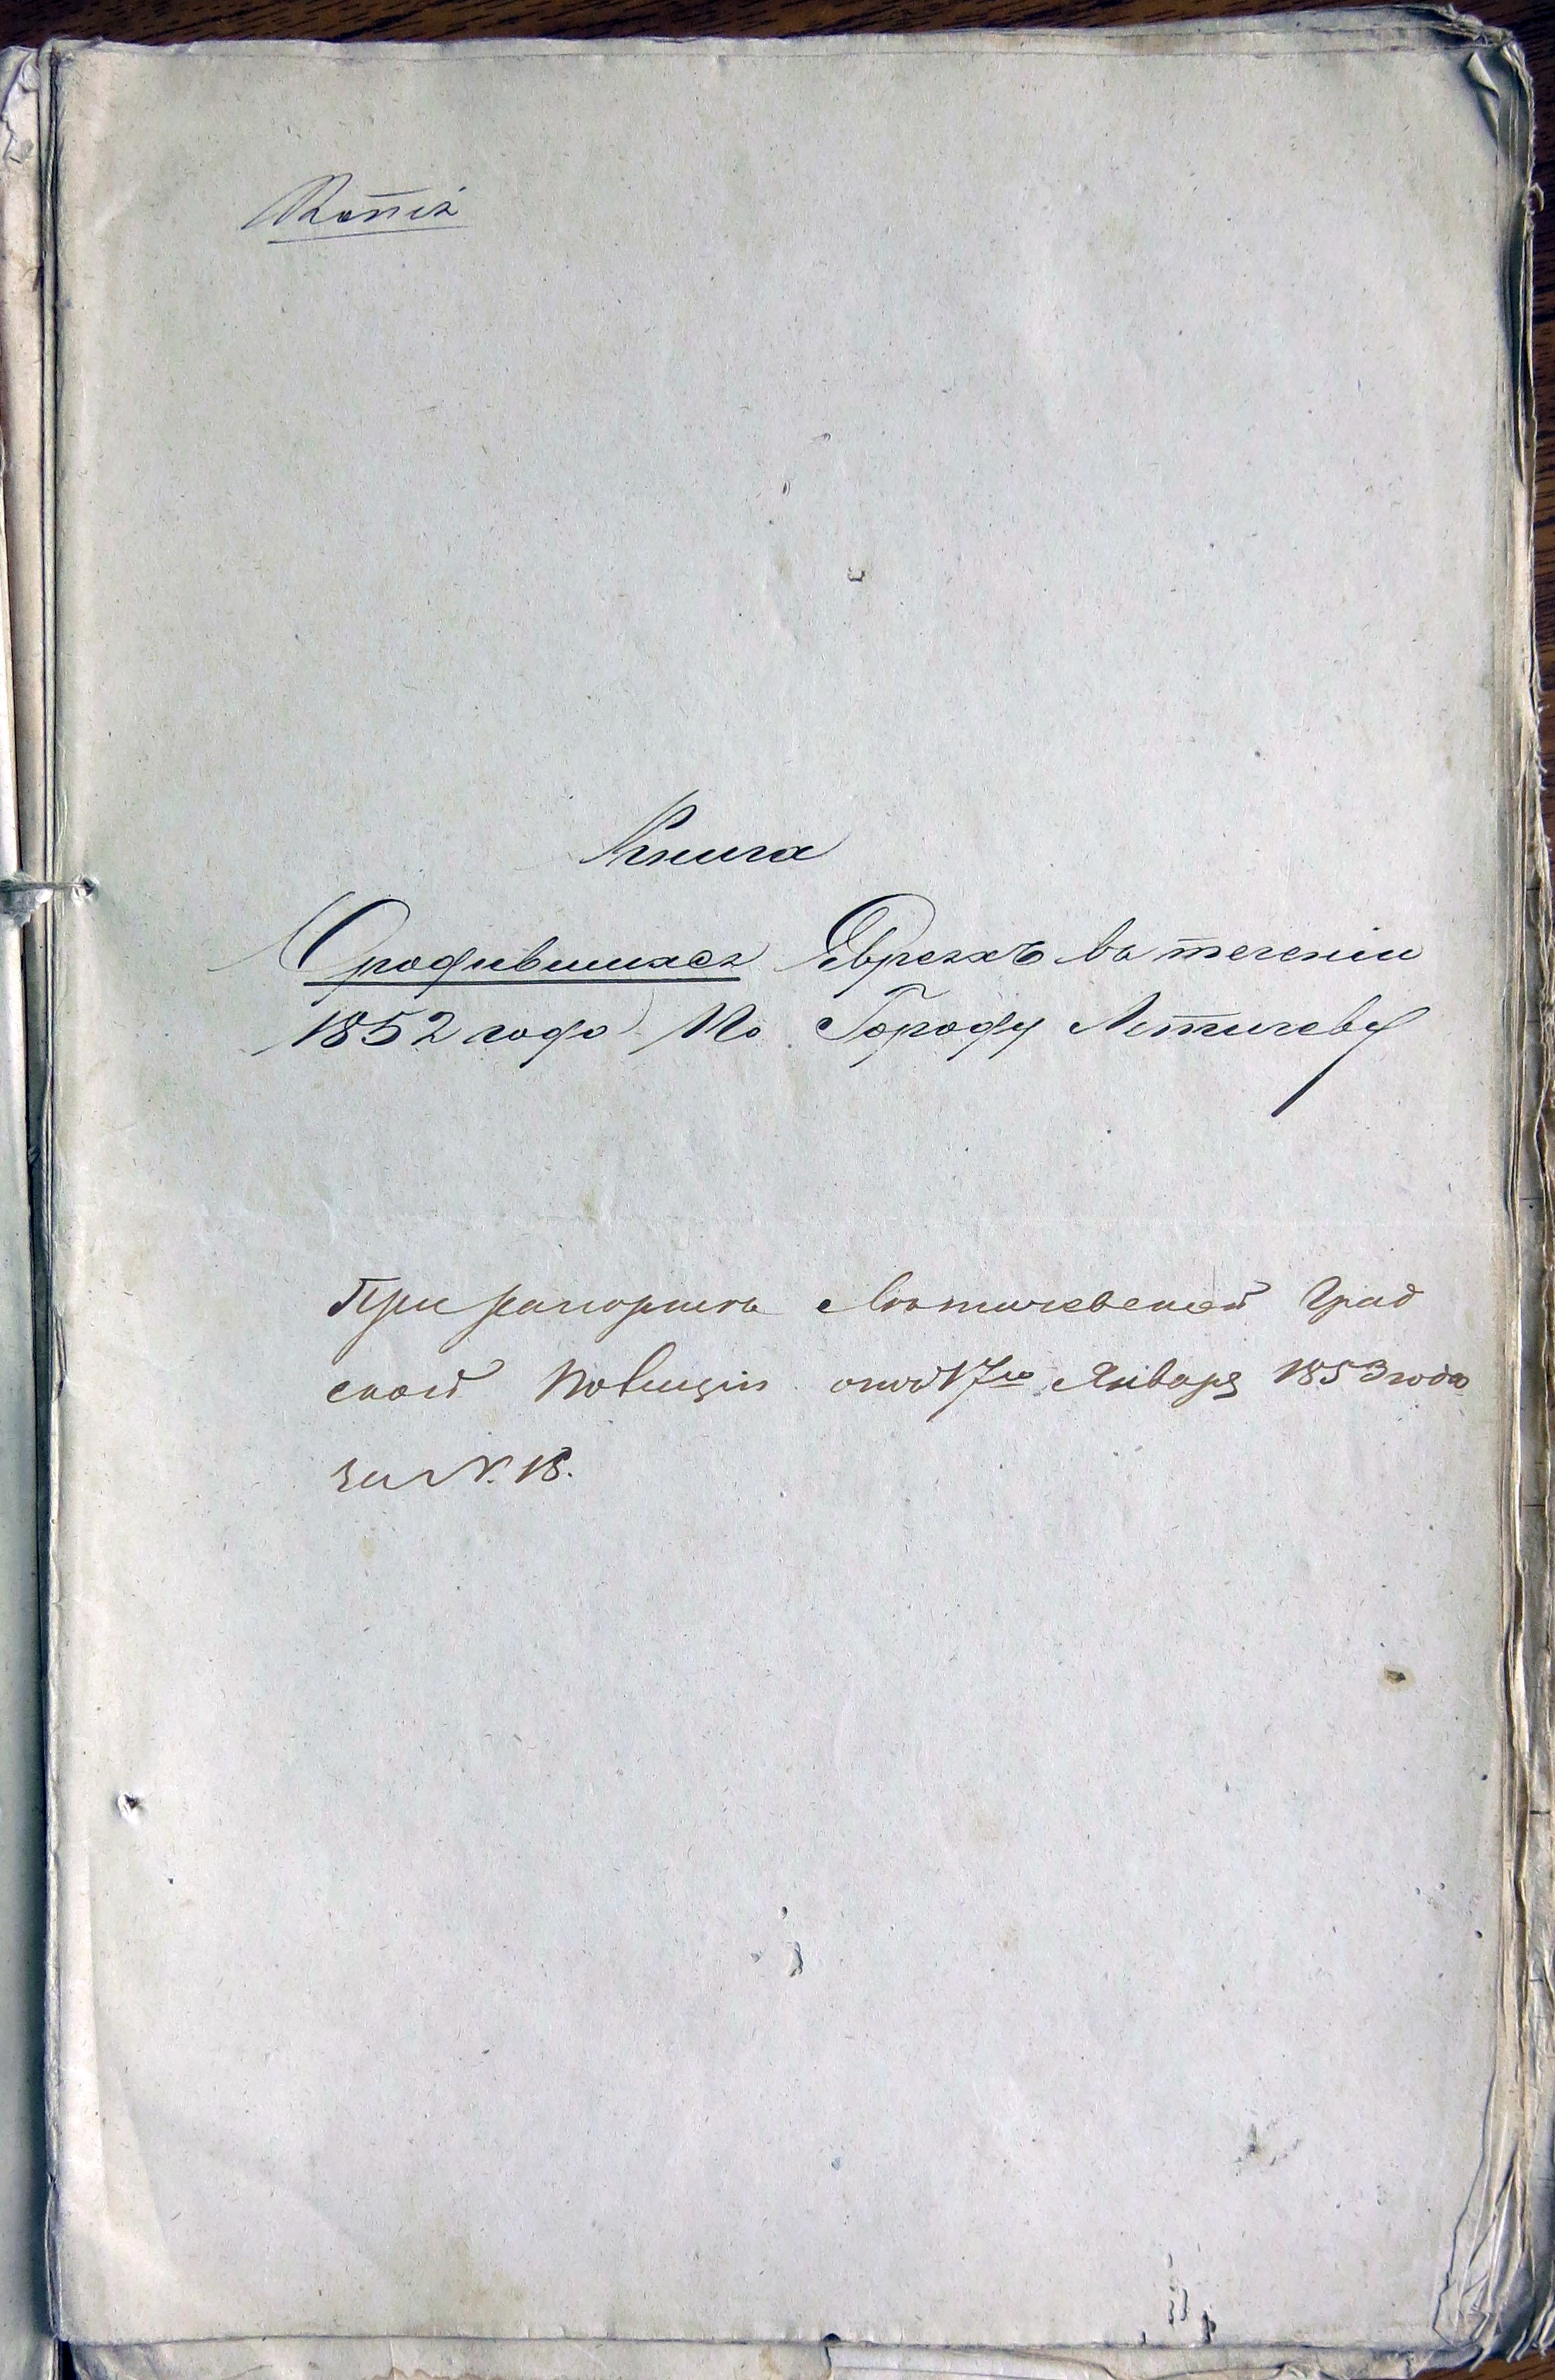 Копія
Книга
О родившихся Евреяхъ въ теченіи
1852 года По Городу Летичеву
При рапортѣ Летичевской Град
ской Полиціи отъ 17го Января 1853 года
за №. 18.